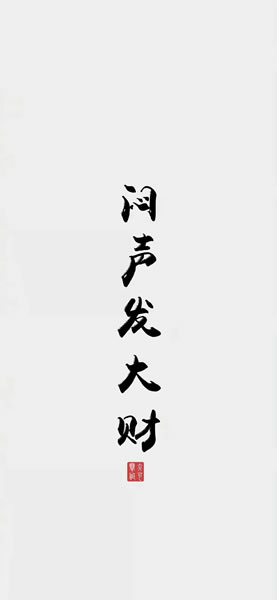 闷声发大财